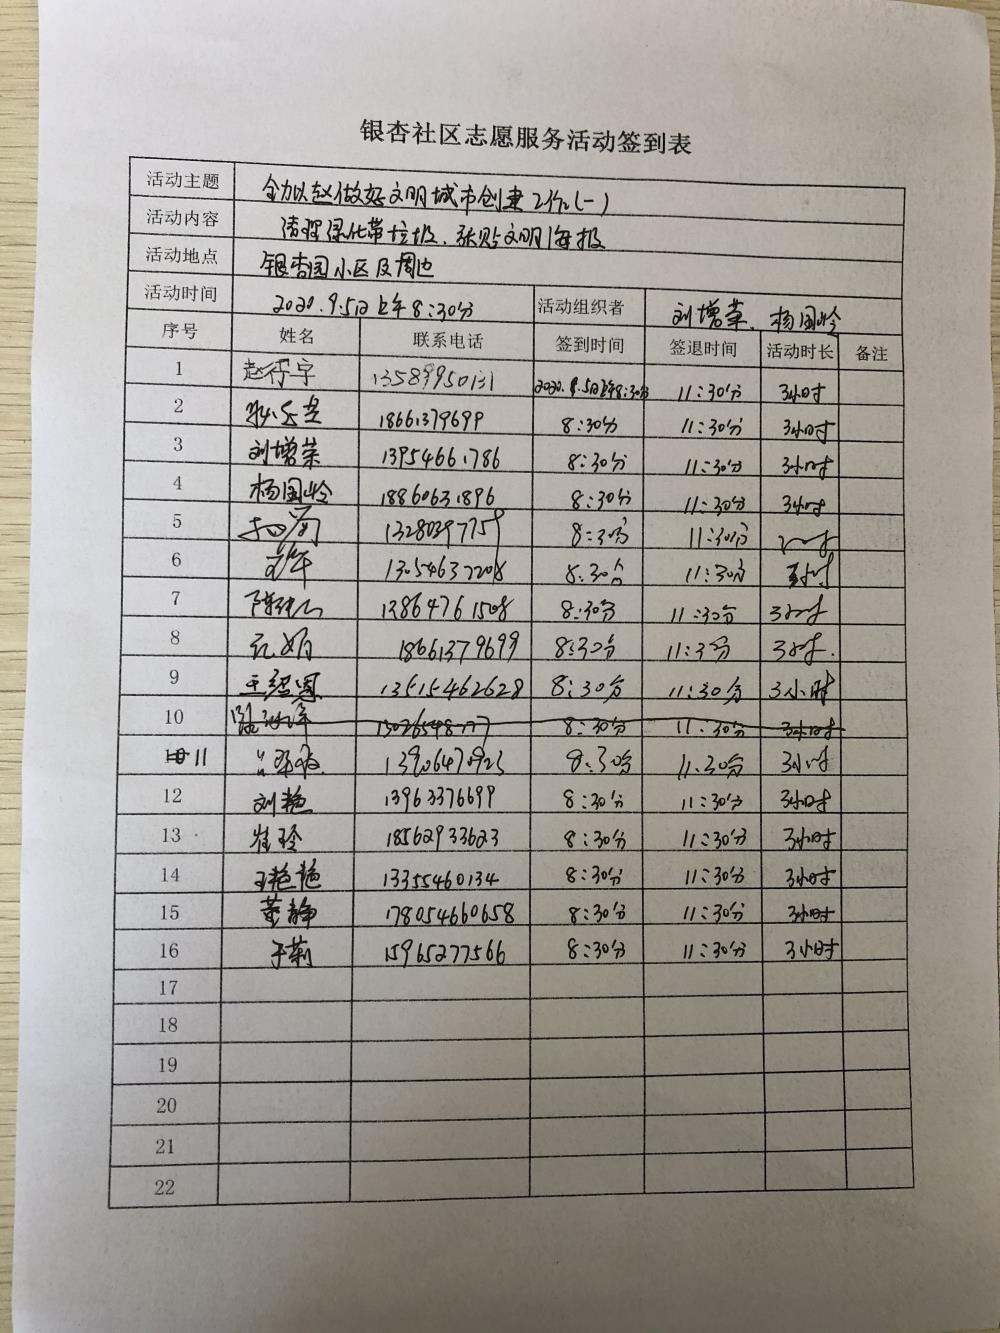 银杏社区志愿服务活动签到表
活动主题 全力以赴做好文明城市创建工作(一)
活动内容 清理绿化带垃圾、张贴文明海报
活动地点 银杏园小区及周边
活动时间 2020.9.5日上午8:30分 活动组织者 刘增荣、杨国岭
序号 姓名 联系电话 签到时间 签退时间 活动时长 备注
1 13589950131 2020.9.5日上午8:30分 11:30分 3小时
2 18661379699 8:30分 11:30分 3小时
3 刘增荣 13954661786 8:30分 11:30分 3小时
4 杨国岭 18860631896 8:30分 11:30分 3小时
5 13280397759 8:30分 11:30分
6 13054637208 8:30分 11:30分 3小时
7 13864761508 8:30分 11:30分 3小时
8 孔娟 18661379699 8:30分 11:30分 3小时.
9 13515462628 8:30分 11:30分 3小时
10 8:30分 11:30分 3小时
11 13906470925 8:30分 11:30分 3小时
12 刘艳 13963376699 8:30分 11:30分 3小时
13 崔玲 18562933623 8:30分 11:30分 3小时
14 王艳艳 13355460134 8:30分 11:30分 3小时
15 董静 178054660658 8:30分 11:30分 3小时
16 于菊 15965277566 8:30分 11:30分 3小时
17
18
19
20
21
22